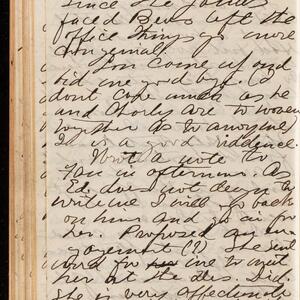 since the James
faced Bews left the
office things go more
congenial.
Lon came up and
bid me good bye. (I
dont care much as he
and Charly are to woven
together as to annoy me)
It is a good riddence.
Wrote a note to
Fan in afternoon. As
Ed does not deign to
write me I will go back
on him and go in for
her. Proposed an en-
gagement (?) She sent
word for me to meet
her at the  Did.
She is very affectionate